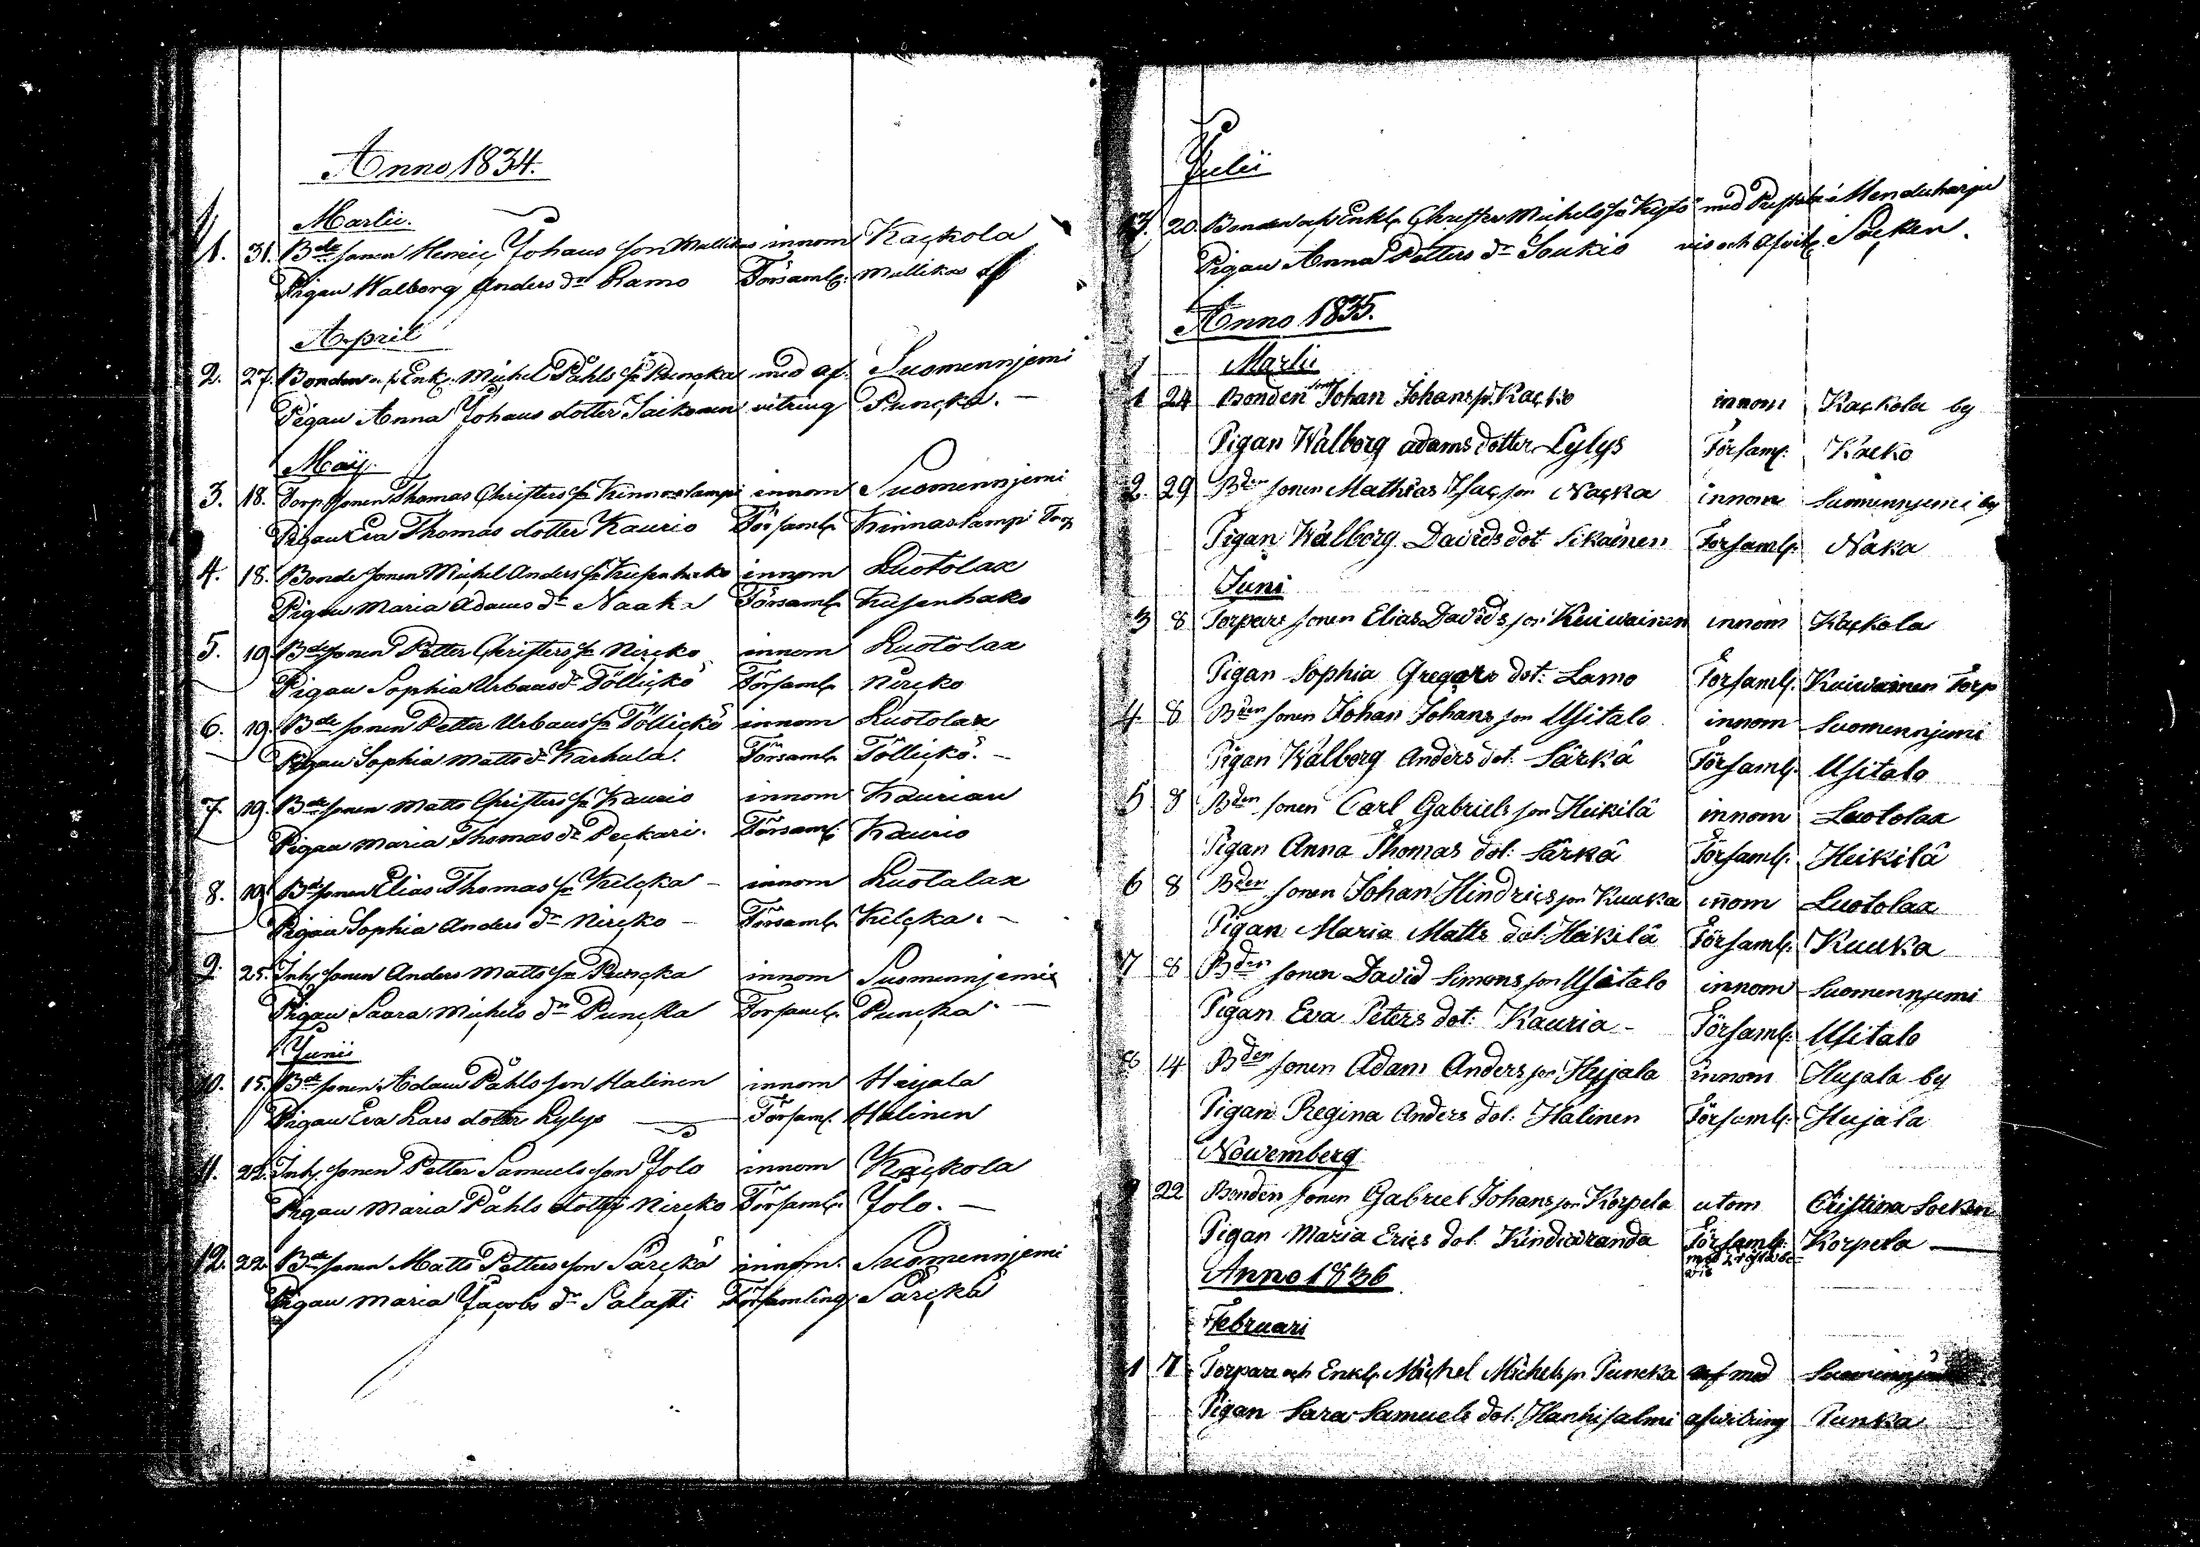 Anno 1834.
Martii.
1. 31. Bde sonen Henric Johans son Mallikas innom Kackola
Pigan Walborg Anders dr Lamo Församl. Mallikas
April
2. 27. Bonden o. Enkl. Michel Påhls sn Puncka med af- Suomennjemi
Pigan Anna Johans dotter Saikonen vitring Puncka. —
Maij.
3. 18. Torp sonen Thomas Christers sn Kinnaslampi innom Suomennjemi
Pigan Eva Thomas dotter Kaurio Församl. Kinnaslampi Torp
4. 18. Bonde sonen Michel Anders sn innom Luotolax
Pigan Maria Adams dr Naaka Församl.
5. 19. Bde sonen Petter Christers sn Nircko innom Luotolax
Pigan Sophia Urbans dr Töllickö Församl. Nircko
6. 19. Bde sonen Petter Urbans sn Töllickö innom Luotolax
Pigan Sophia Matts dr Karhula. Församl. Töllickö. —
7. 19. Bde sonen Matts Christers sn Kaurio innom Kaurian
Pigan Maria Thomas dr Peckari. Församl. Kaurio
8. 19. Bde sonen Elias Thomas sn Kelcka — innom Luotalax
Pigan Sophia Anders dr Nircko — Församl. Kelcka. —
9. 25. Inh. sonen Anders Matts sn Puncka innom Suomennjemi
Pigan Saara Michels dr Puncka Församl. Puncka. —
Junii
10. 15. Bde sonen Adam Påhls son Halinen innom Hujala
Pigan Eva Lars dotter Lylys — Församl. Halinen
11. 22. Inh. sonen Petter Samuels son Jolo innom Kackola
Pigan Maria Påhls dotter Nircko Församl. Jolo. —
12. 22. Bde sonen Matts Petters son Särckä innom. Suomennjemi
Pigan Maria Jacobs dr Salasti Församling Särckä
Julii
13. 20. Bonden och Enkl. Christer Michels sn med i Menduharju
Pigan Anna Petters dr Soukio vis och Afvitr. Socken.
Anno 1835.
Martii
1 24 Bonden sonen Johan Johans sn Kacko innom Kackola by
Pigan Walborg adams dotter Lylys Församl. Kacko
2. 29 Bden sonen Mathias Isac son Nacka innom Suomennjemi by
Pigan Walborg Davids dot Sikäinen Församl. Naka
Juni
3 8 Torpare sonen Elias Davids son Kuiwainen innom Kackola
Pigan Sophia Gregors dot: Lamo Församl. Kuiwainen Torp
4. 8 Bden sonen Johan Johans son Usitalo innom Suomennjemi
Pigan Walborg Anders dot: Särkä Församl. Usitalo
5 8 Bden sonen Carl Gabriels son Heikilä innom Luotolax
Pigan Anna Thomas dot: Särkä Församl. Heikilä
6 8 Bden sonen Johan Hindrics son Kuuka innom Luotolax
Pigan Maria Matts dot: Heikilä Församl. Kuuka
7 8 Bden sonen David Simons son Usitalo innom Suomennjemi
Pigan Eva Peters dot: Kauria — Församl. Usitalo
8 14 Bden sonen Adam Anders son Hujala innom Hujala by
Pigan Regina Anders dot: Halinen Församl: Hujala
Nowemberg
9 22 Bonden sonen Gabriel Johans son Korpela utom Cristina Socken
Pigan Maria Erics dot. Kindiaranda Församl: Korpela —
Anno 1836
Februari
1 7 Torpare och Enkl. Michel Michels sn Puncka med
Pigan Sara Samuels dot: Hanhisalmi afwitring Punka